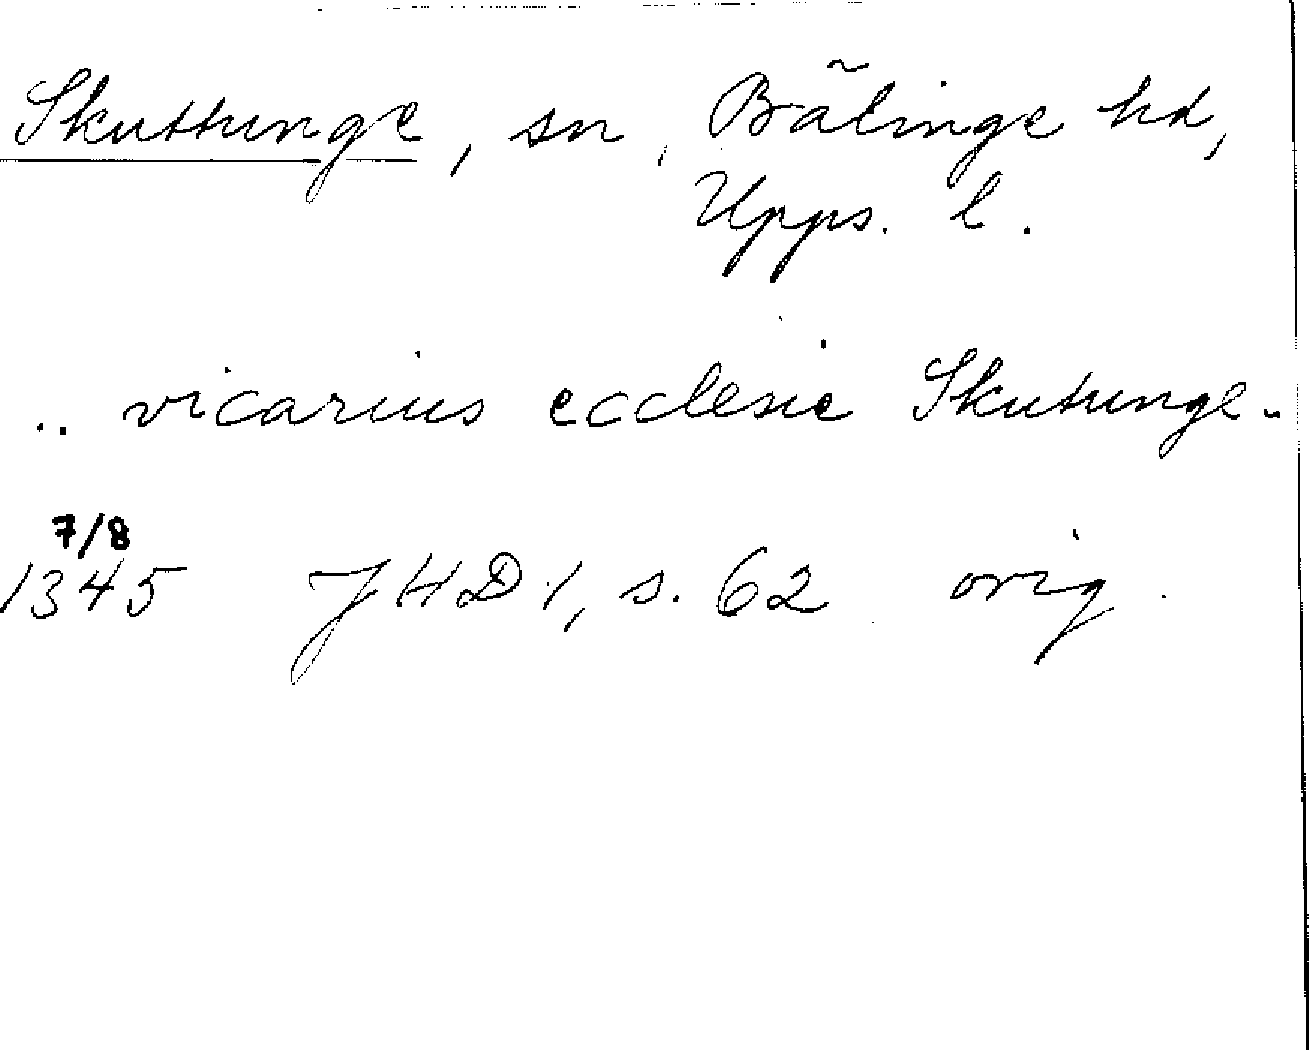 Skuttunge, sn, Bälinge hd,
Upps. l.
.. vicarius ecclesie Skutunge..
7/8
1345 JHD 1, s. 62 orig.